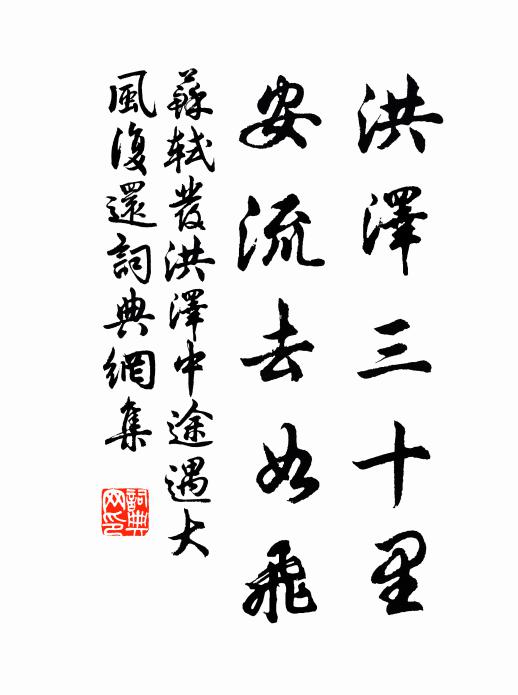 洪澤三十里
安流去如飛
蘇軾發洪澤中途遇大
風復還詞典網集
詞典網印